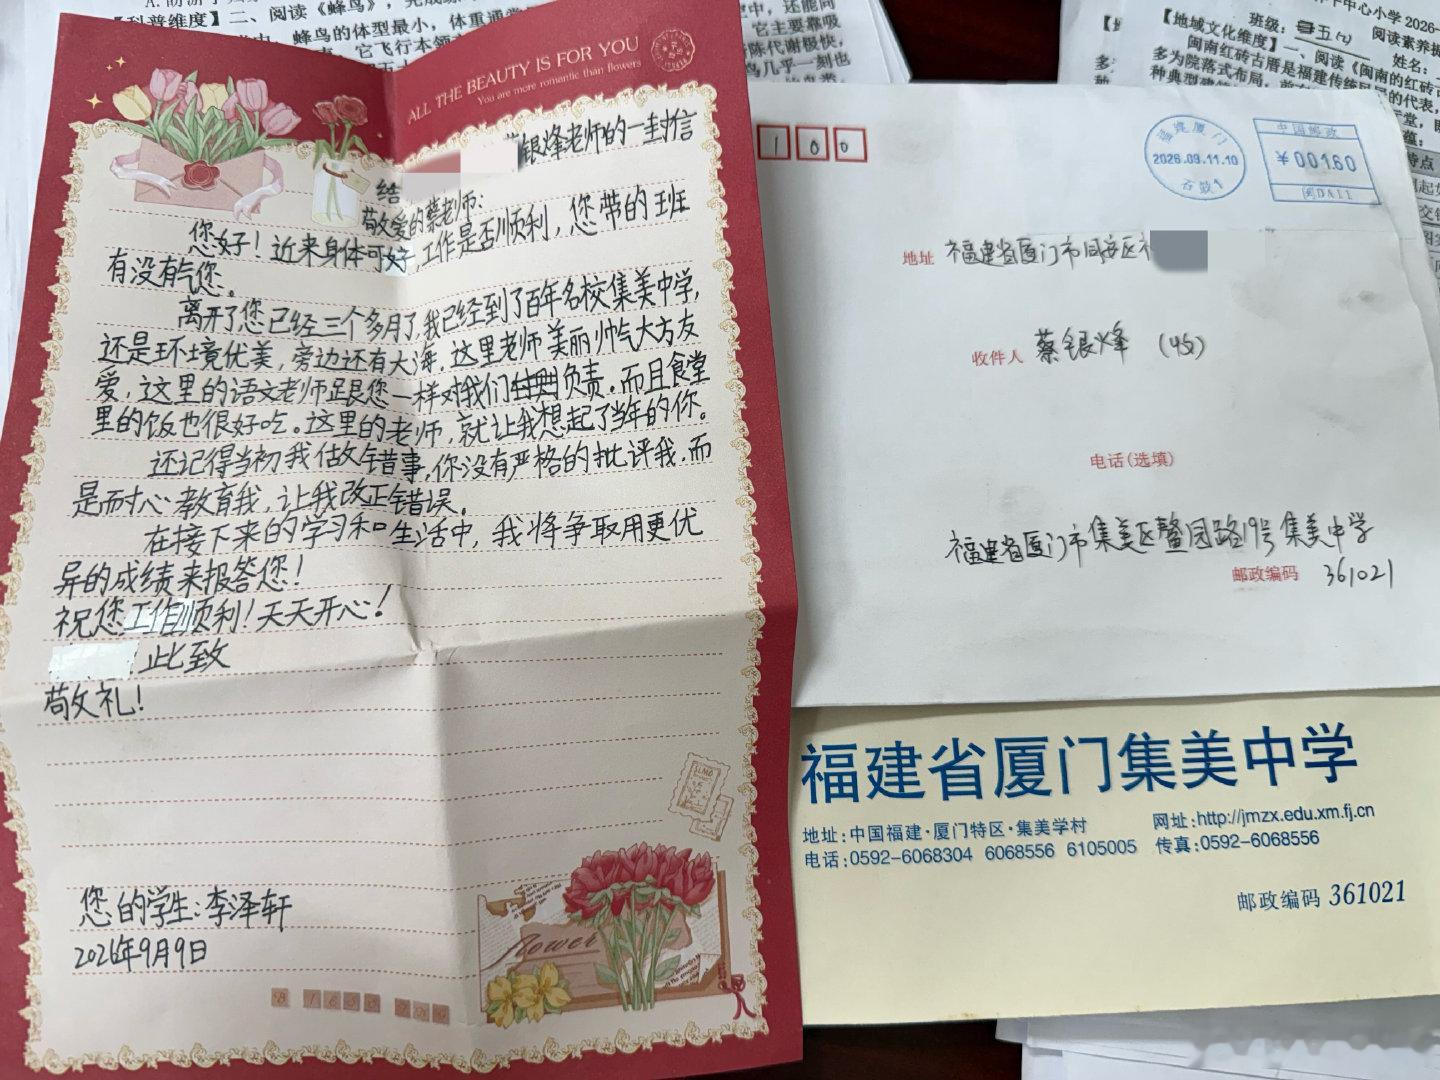 ALL THE BEAUTY IS FOR YOU
You are more romantic than flowers
银烽老师的一封信
给
敬爱的蔡老师：
您好！近来身体可好，工作是否顺利，您带的班
有没有气您。
离开了您已经三个多月了，我已经到了百年名校集美中学，
还是环境优美，旁边还有大海，这里老师美丽帅气大方友
爱，这里的语文老师跟您一样对我们负责。而且食堂
里的饭也很好吃。这里的老师，就让我想起了当年的你。
还记得当初我做错事，你没有严格的批评我，而
是耐心教育我，让我改正错误。
在接下来的学习和生活中，我将争取用更优
异的成绩来报答您！
祝您工作顺利！天天开心！
此致
敬礼！
您的学生：李泽轩
2026年9月9日
flower
100
福建厦门
2026.09.11.10
中国邮政
¥00160
地址 福建省厦门市同安区
收件人 蔡银烽（收）
电话（选填）
福建省厦门市集美区鳌园路19号集美中学
邮政编码 361021
福建省厦门集美中学
地址：中国福建·厦门特区·集美学村
网址：http://jmzx.edu.xm.fj.cn
电话：0592-6068304 6068556 6105005
传真：0592-6068556
邮政编码 361021
【科普维度】二、阅读《蜂鸟》，完成
蜂鸟的体型最小，体重通常
它飞行本领
中心小学2026-
班级： 五(4) 阅读素养
【地域文化维度】一、阅读《闽南的红砖古
姓名：
闽南红砖古厝是福建传统民居的代表，
多为院落式布局，前
种典型建筑